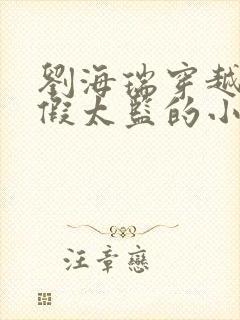 劉海瑞穿越
假太監的小
汪章戀